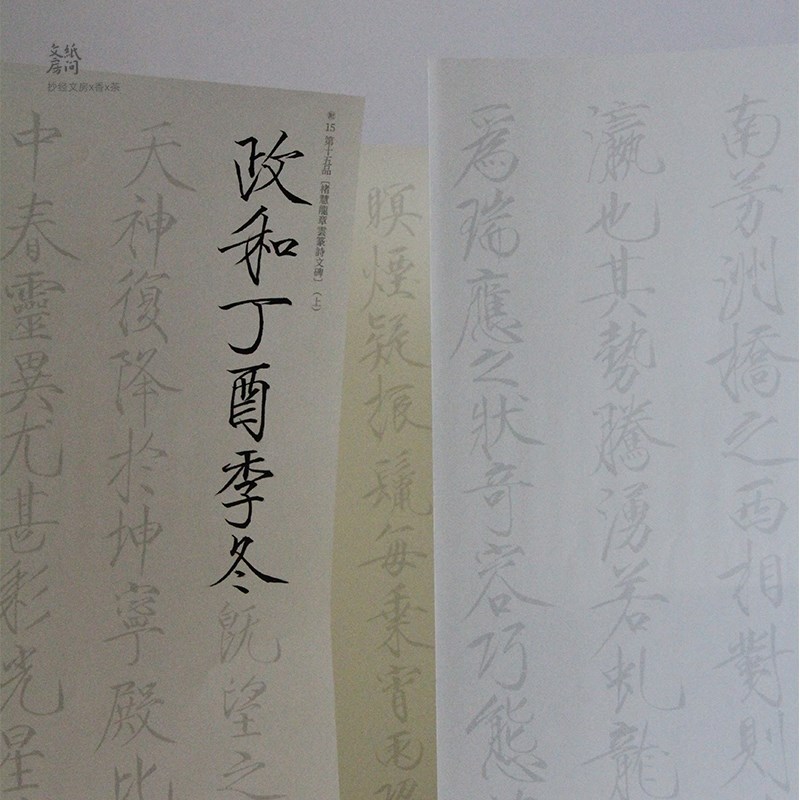 纸间
文房
抄经文房x香x茶
15 第十五品〔褚慧龍章雲篆詩文碑〕（上）
政和丁酉季冬既望之
天神復降於坤寧殿比
中春靈異尤甚彩光星
瞑煙疑振鬣每乘宵
南芳洲橋之西相對則
瀛也其勢騰湧若虬龍
為瑞應之狀奇容巧態